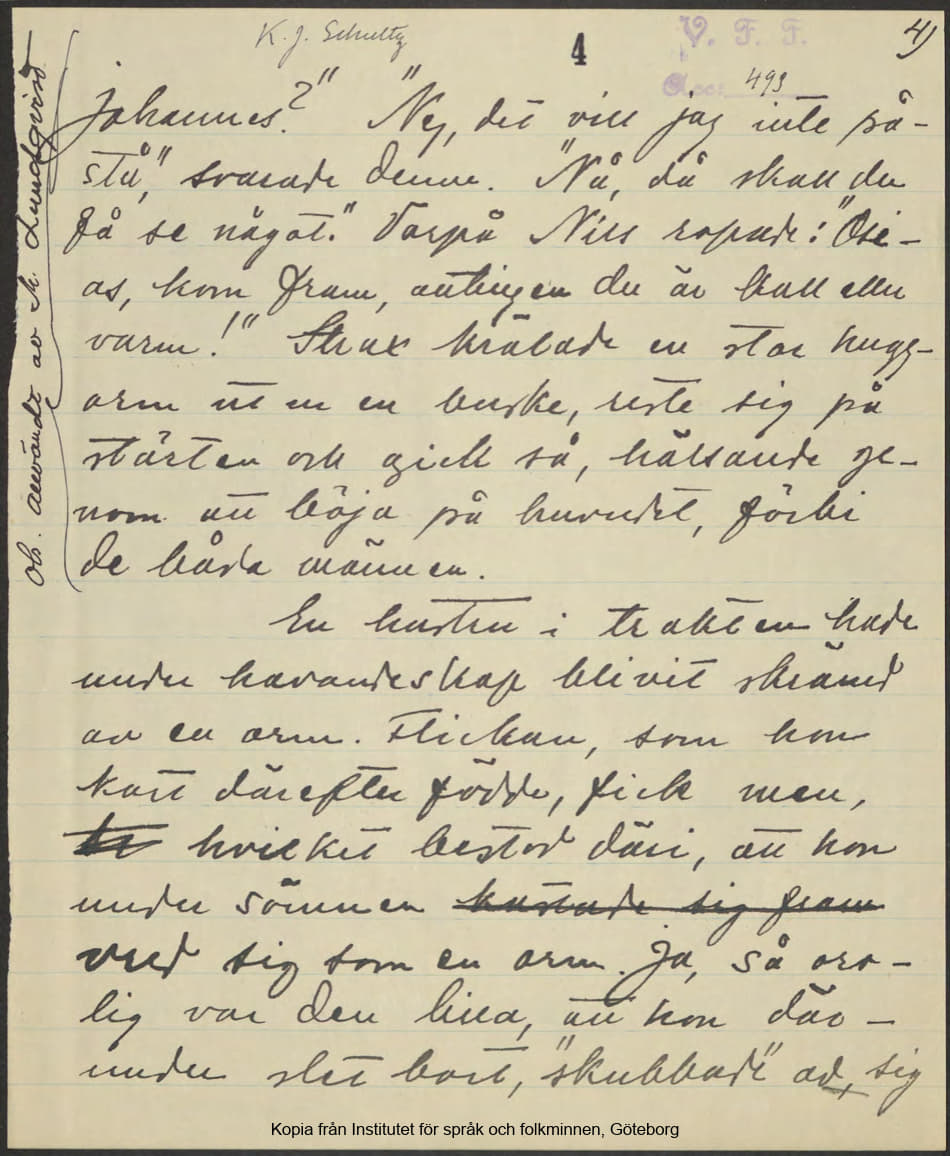 K. J. Schultz
4
4)
V. F. F.
Acc: 493
Johannes?" "Nej, det vill jag inte på-
stå," svarade denne. "Nå, då skall du
få se något." Varpå Nils ropade: "Osi-
as, kom fram, antingen du är kall eller
varm!" Strax krälade en stor hugg-
orm ut ur en buske, reste sig på
stärten och gick så, hälsande ge-
nom att böja på huvudet, förbi
de båda männen.
En hustru i trakten hade
under havandeskap blivit skrämd
av en orm. Flickan, som hon
kort därefter födde, fick men,
hvilket bestod däri, att hon
under sömnen kastade sig fram
vred sig som en orm. Ja, så oro-
lig var den lilla, att hon där-
under slet bort, "skubbade" av, sig
Ob. användt av M. Lundqvist
Kopia från Institutet för språk och folkminnen, Göteborg